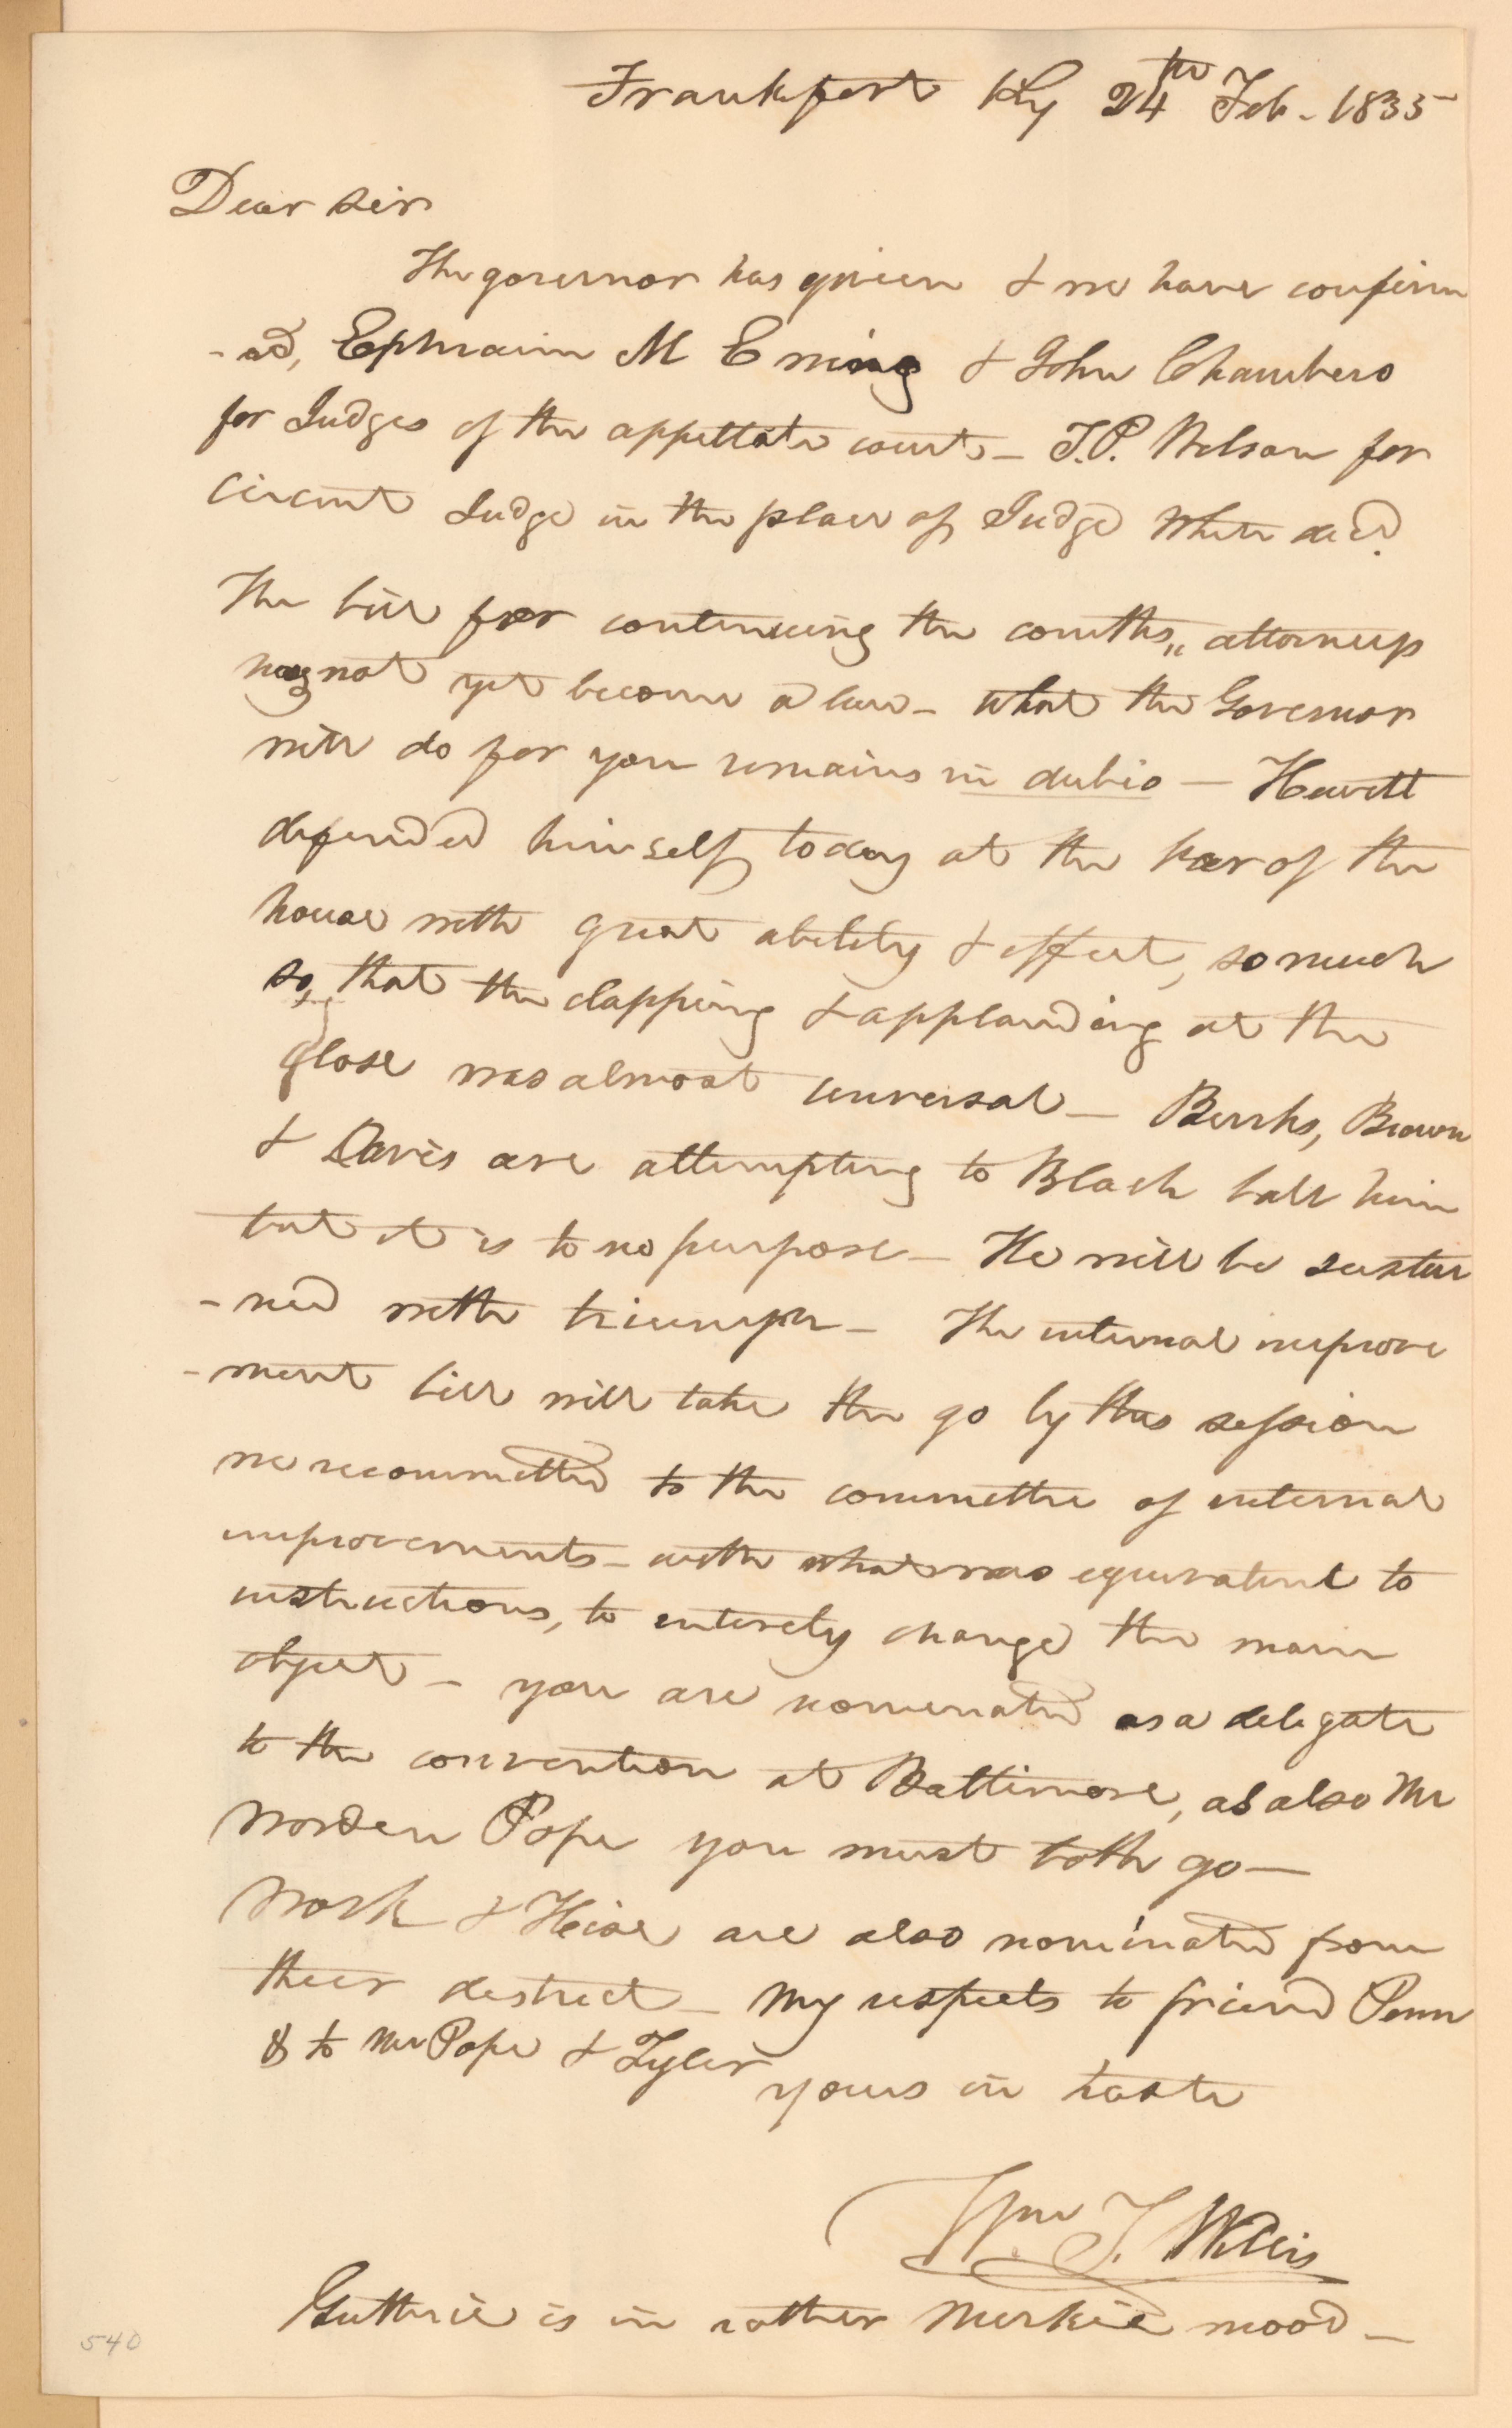 Frankfort Ky 24th Feb. 1835
Dear sir
The governor has given & we have confirm
-ed, Ephraim M Ewing & John Chambers
for Judges of the appellate court - T.P. Wilson for
circuit Judge in the place of Judge White decd.
The bill for continuing the comths,, attorneys
has not yet become a law - what the Governor
will do for you remains in dubio - Hewett
defended himself today at the bar of the
house with great ability & effect, so much
so, that the clapping & applauding at the
close was almost universal - Burks, Brown
& Davis are attempting to Black ball him
but it is to no purpose - He will be sustai
-ned with triumph - The internal improve
-ment bill will take the go by this session
we recommitted to the committee of internal
improvements - with what was equivalent to
instructions, to entirely change the main
object - you are nominated as a delegate
to the convention at Baltimore, as also Mr
Worden Pope you must both go -
Work & Heise are also nominated from
their district - My respects to friend Penn
& to Mr Pope & Tyler
yours in haste
Wm T. Willis
Guthrie is in rather murkie mood -
540